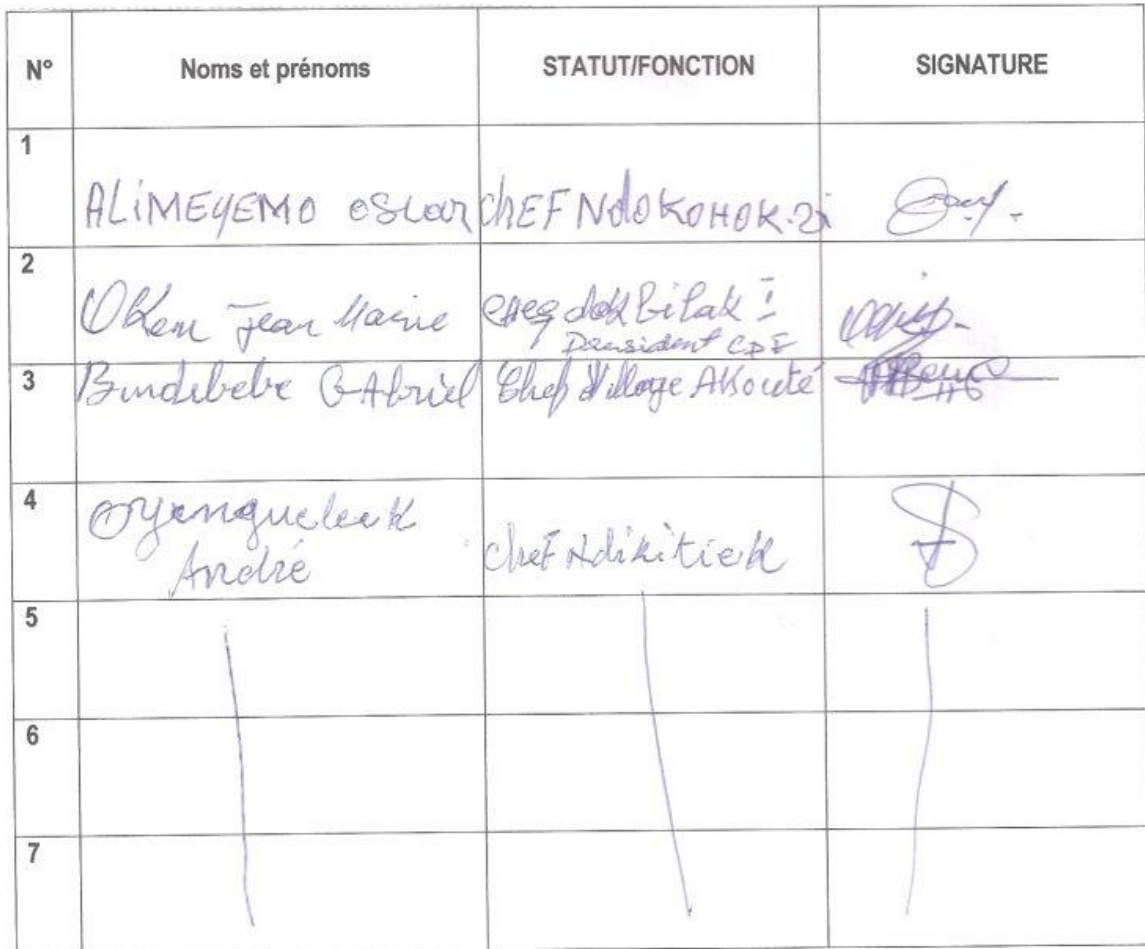 N° Noms et prénoms STATUT/FONCTION SIGNATURE
1
ALiMEYEMO oscar chEF NdoKoHoK.
2
Jean Marie
President
3 Bindebebe GAbriel Chef Village Akouté
4
Oyangueleek
André chef Ndikitiek
5
6
7